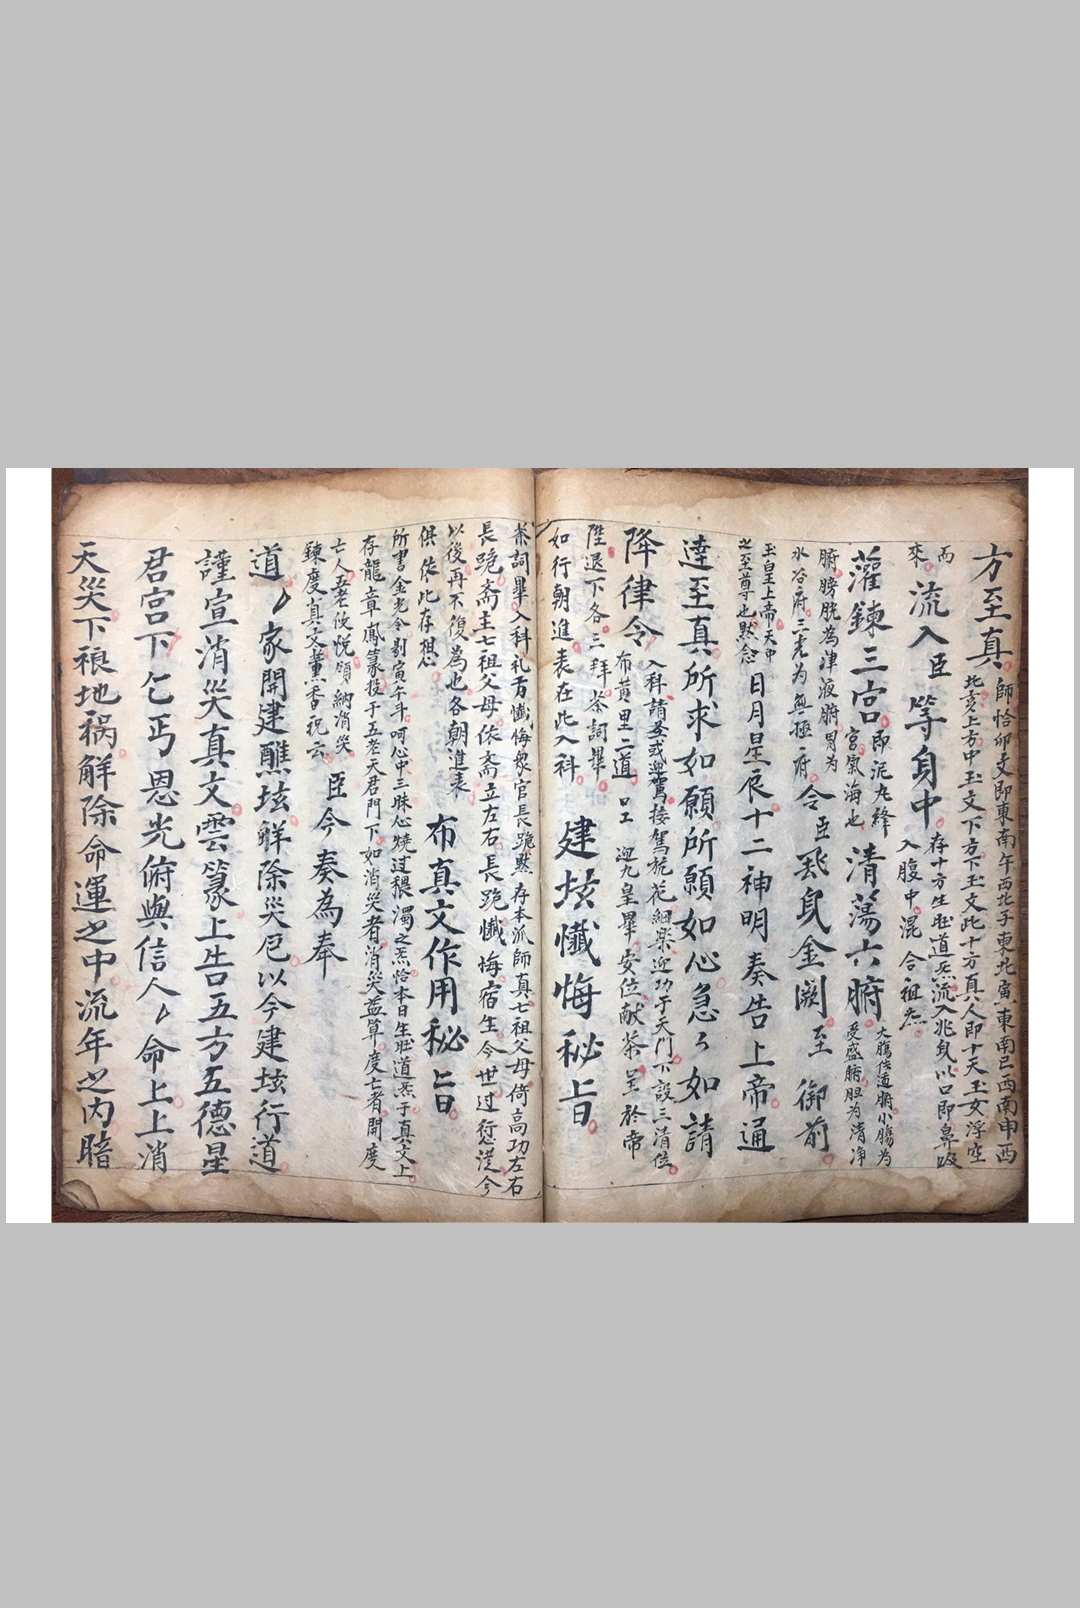 方至真 師恰卯文即東南午西北子東北寅東南巳西南申西
北亥上方中玉文下方下玉文此十方真人即十天玉女浮空
而來 流入臣等身中 存十方生炁道炁流入兆身以口即鼻吸
入腹中混合祖炁
灌鍊三宮 即泥丸絳宮氣海也 清蕩六腑 大膓傳道腑小膓為受盛腑胆為清净
腑膀胱為津液腑胃為水谷府三焦為無極府 令臣飛身金闕至御前
玉皇上帝天中之至尊也默念 日月星辰十二神明奏告上帝通
達至真所求如願所願如心急々如請
降律令 入科請圣或迎駕接駕旂花細樂迎功于天門下設三清位
布黃里二道 迎九皇畢安位献茶呈於帝
陛退下各三拜茶詞畢
如行朝進表在此入科 建垓懺悔秘旨
茶詞畢入科礼方懺悔衆官長跪黙存本派師真七祖父母倚高功左右
長跪斋主七祖父母依斋立左右長跪懺悔宿生今世过愆從今
以後再不復為也各朝進表
俱依此存想 布真文作用秘旨
所書金光令剔寅午斗呵心中三昧火燒过穢濁之炁恰本日生旺道炁于真文上
存龍章鳳篆投于五老天君門下如消災者消災益算度亡者開度
亡人五老攸悦領納消災
鍊度真文薰香祝云 臣今奏為奉
道 家開建醮垓觧除災厄以今建垓行道
謹宣消災真文雲篆上告五方五德星
君宫下乞丐恩光俯與信人 命上上消
天災下禳地祸觧除命運之中流年之内暗